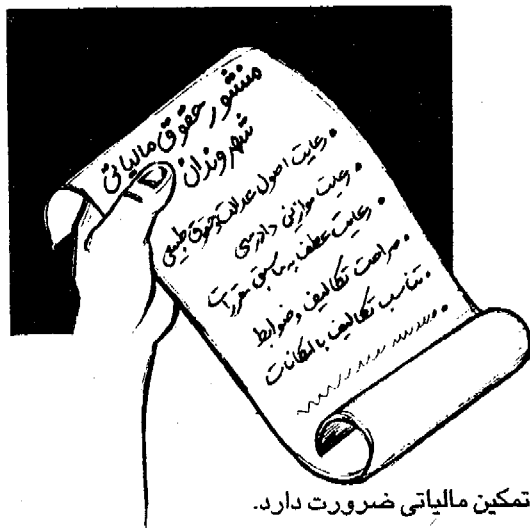 منشور حقوق مالیاتی
شهروندان
• رعایت اصول عدالت و حقوق طبیعی
• رعایت موازین دادرسی
• رعایت عطف به ماسبق مقررات
• صراحت تکالیف و ضوابط
• تناسب تکالیف با امکانات
تمکین مالیاتی ضرورت دارد.